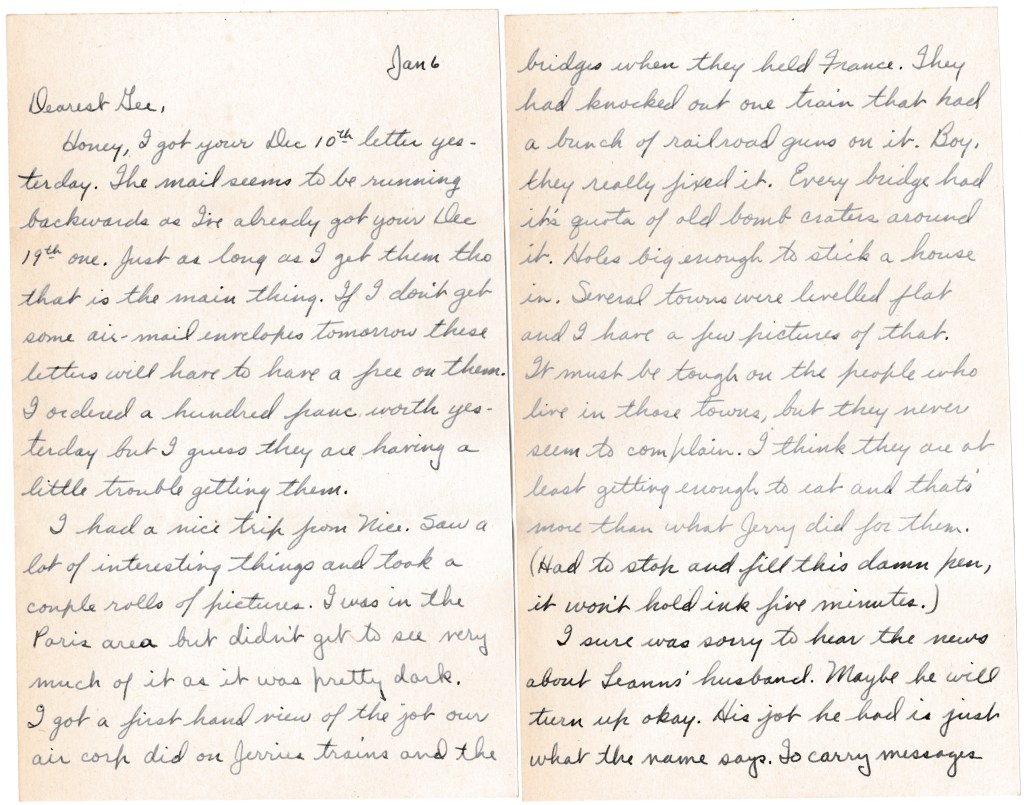 Jan 6
Dearest Gee,
Honey, I got your Dec 10th letter yes-
terday. The mail seems to be running
backwards as I've already got your Dec
19th one. Just as long as I get them tho
that is the main thing. If I don't get
some air-mail envelopes tomorrow these
letters will have to have a free on them.
I ordered a hundred franc worth yes-
terday but I guess they are having a
little trouble getting them.
I had a nice trip from Nice. Saw a
lot of interesting things and took a
couple rolls of pictures. I was in the
Paris area but didn't get to see very
much of it as it was pretty dark.
I got a first hand view of the job our
air corp did on Jerries trains and the
bridges when they held France. They
had knocked out one train that had
a bunch of railroad guns on it. Boy,
they really fixed it. Every bridge had
it's quota of old bomb craters around
it. Holes big enough to stick a house
in. Several towns were levelled flat
and I have a few pictures of that.
It must be tough on the people who
live in those towns, but they never
seem to complain. I think they are at
least getting enough to eat and thats'
more than what Jerry did for them.
(Had to stop and fill this damn pen,
it won't hold ink five minutes.)
I sure was sorry to hear the news
about Leanns' husband. Maybe he will
turn up okay. His job he had is just
what the name says. To carry messages